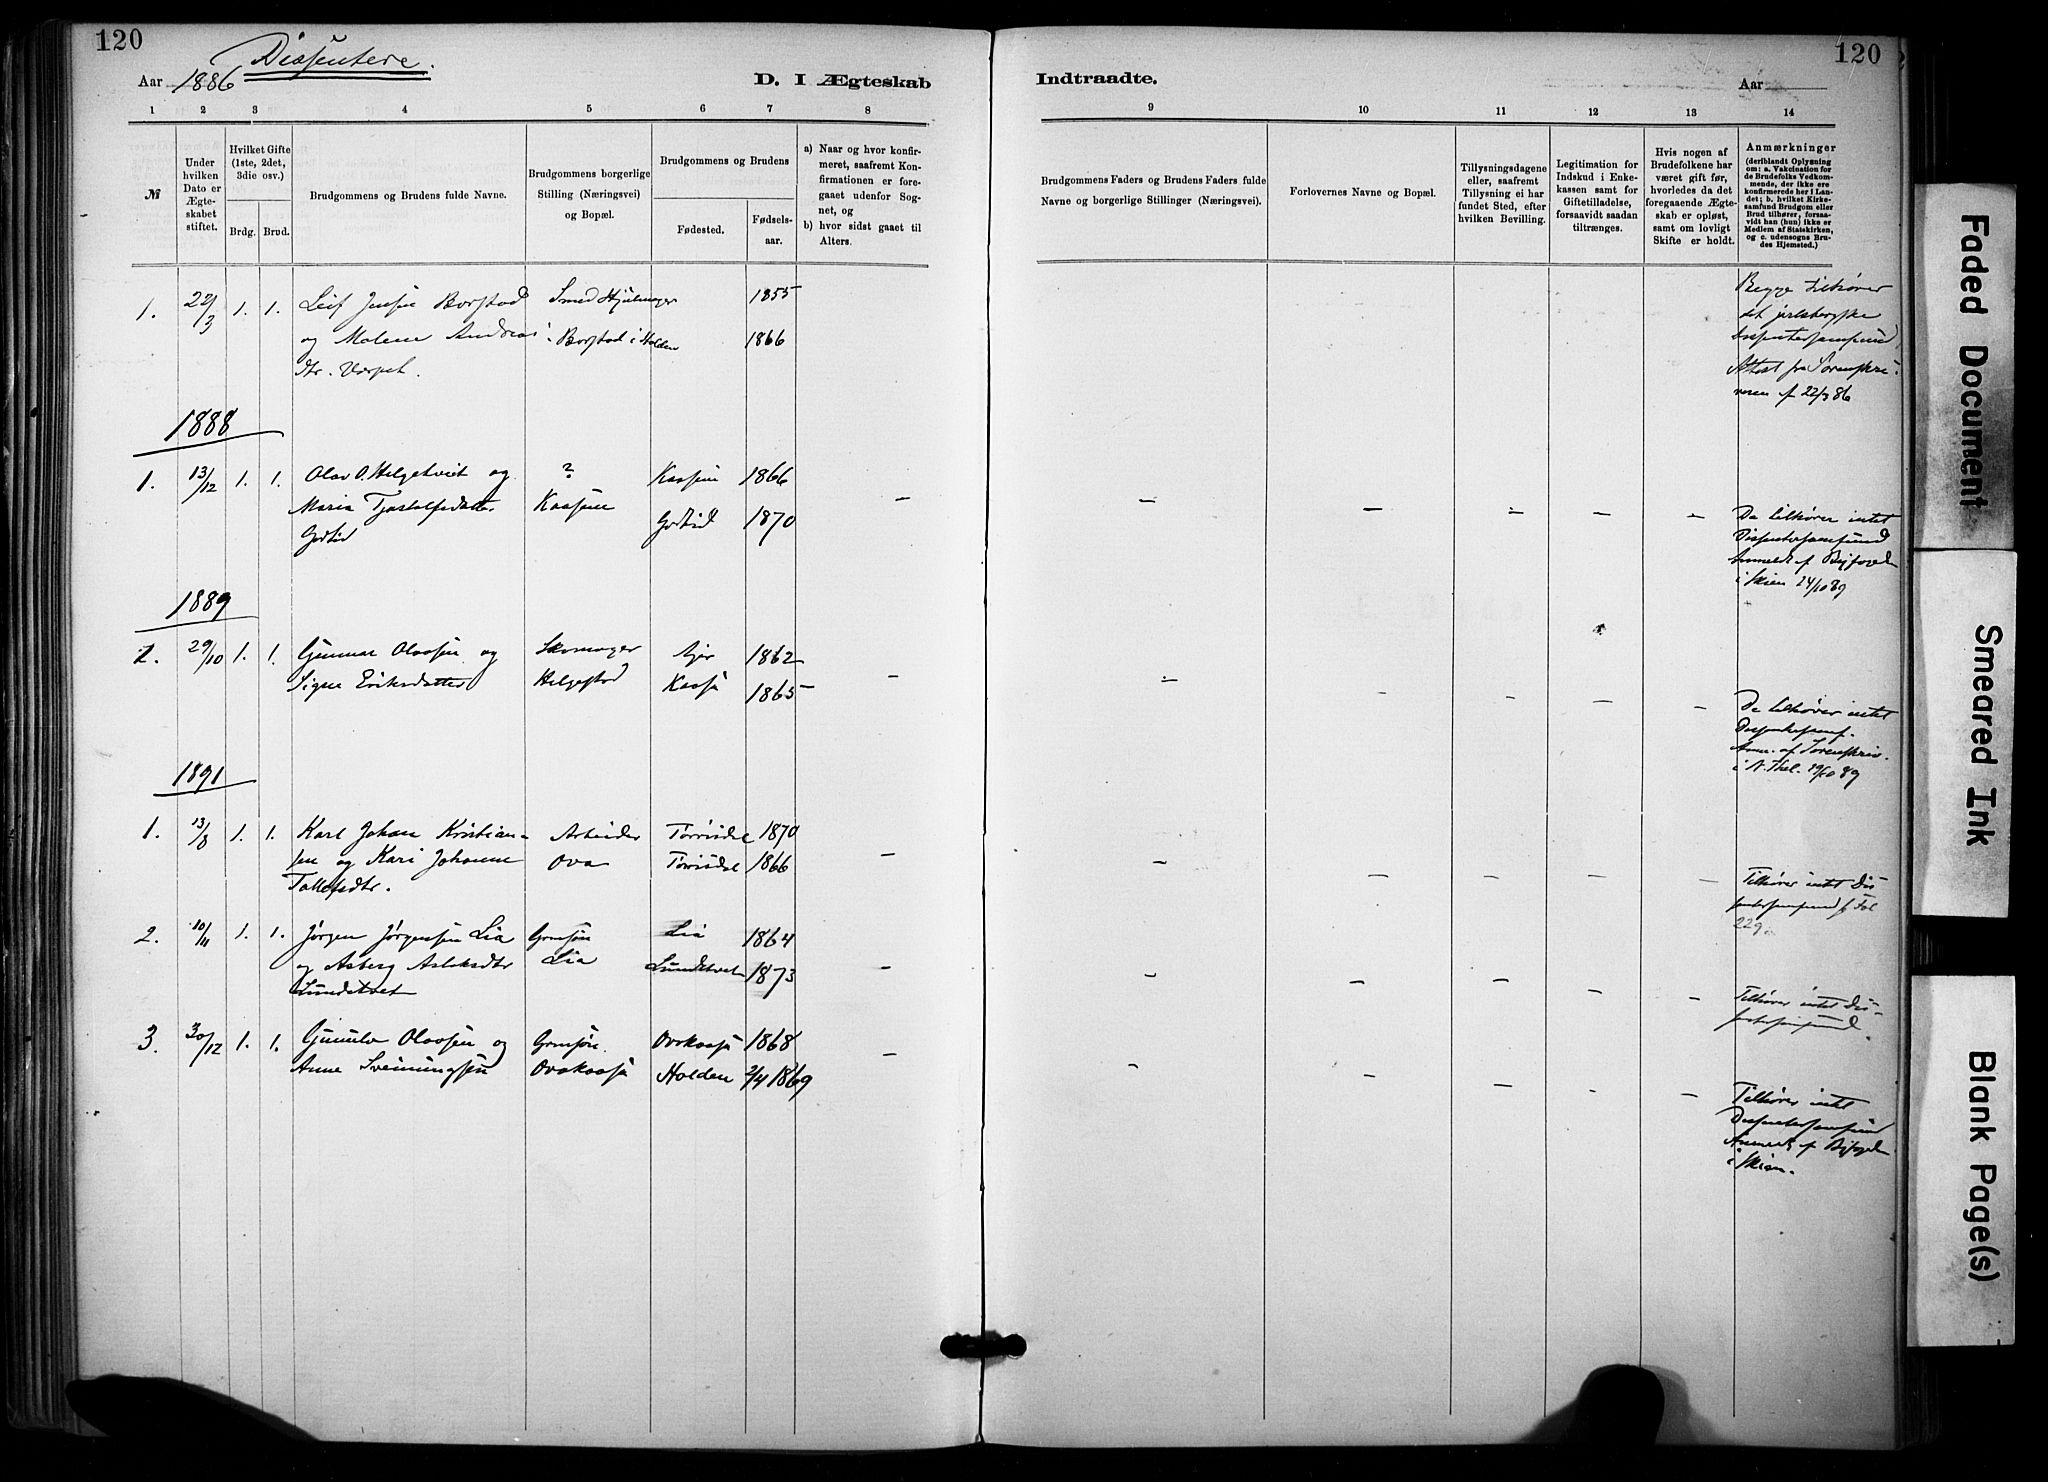 120
Dissentere.
Aar 1886
D. I Ægteskab
Indtraadte.
Aar
120
1 2 3 4 5 6 7 8 9 10 11 12 13 14
№
Under hvilken Dato er Ægteskabet stiftet.
Hvilket Gifte (1ste, 2det, 3die osv.)
Brdg. Brud.
Brudgommens og Brudens fulde Navne.
Brudgommens borgerlige Stilling (Næringsvei) og Bopæl.
Brudgommens og Brudens
Fødested.
Fødselsaar.
a) Naar og hvor konfirmeret, saafremt Konfirmationen er foregaaet udenfor Sognet, og
b) hvor sidst gaaet til Alters.
Brudgommens Faders og Brudens Faders fulde Navne og borgerlige Stillinger (Næringsvei).
Forlovernes Navne og Bopæl.
Tillysningsdagene eller, saafremt Tillysning ei har fundet Sted, efter hvilken Bevilling.
Legitimation for Indskud i Enkekassen samt for Giftetilladelse, forsaavidt saadan tiltrænges.
Hvis nogen af Brudefolkene har været gift før, hvorledes da det foregaaende Ægteskab er opløst, samt om lovligt Skifte er holdt.
Anmærkninger (deriblandt Oplysning om: a. Vakcination for de Brudefolks Vedkommende, der ikke ere konfirmerede her i Landet; b. hvilket Kirkesamfund Brudgom eller Brud tilhører, forsaavidt han (hun) ikke er Medlem af Statskirken, og c. udensogns Brudes Hjemsted.)
1. 22/3 1. 1. Leif Jensen Borstad Smed Hjulmager 1855
og Malene Andreas Borstad i Holden 1866
dtr. Værpet.
Begge tilhører
det jarlsbergske
Dissentersamfund
Attest fra Sorenskri-
veren af 22/3 86
1888
1. 13/12 1. 1. Olav O. Helgetveit og ? Kaasene 1866 –
Maria Tjostolfsdatter Kaasene Godtid 1870
Godtid
– – – – –
De tilhører intet
Dissentersamfund
Anmeldt af Byfoged
i Skien 24/10 89
1889
1. 29/10 1. 1. Gunnar Olavsen og Skomager 1862 –
Signe Eriksdatter Helgestad Kaasa 1865
– – – – –
De tilhører intet
Dissentersamf.
Anm. af Sorenskriv.
i N. Thel. 29/10 89
1891
1. 13/8 1. 1. Karl Johan Kristian- Arbeider Tørrisdal 1870 –
sen og Kari Johanne Ova Tørrisdal 1866
Tollefsdtr.
– – – – –
Tilhører intet Dis-
sentersamfund f. Fol
229.
2. 10/11 1. 1. Jørgen Jørgensen Lia Grmsøn Lia 1864 –
og Asberg Aslaksdtr Lia Lundetvet 1873
Lundetvet
– – – – –
Tilhører intet Dis-
sentersamfund.
3. 30/12 1. 1. Gunulv Olavsen og Grmsøn. Ovakaasa 1868 –
Anne Sveinungsen Ovakaasa Holden 2/4 1869
– – – – –
Tilhører intet
Dissentersamfund
Anmeldt af Byfoged
i Skien.
Faded Document
Smeared Ink
Blank Page(s)